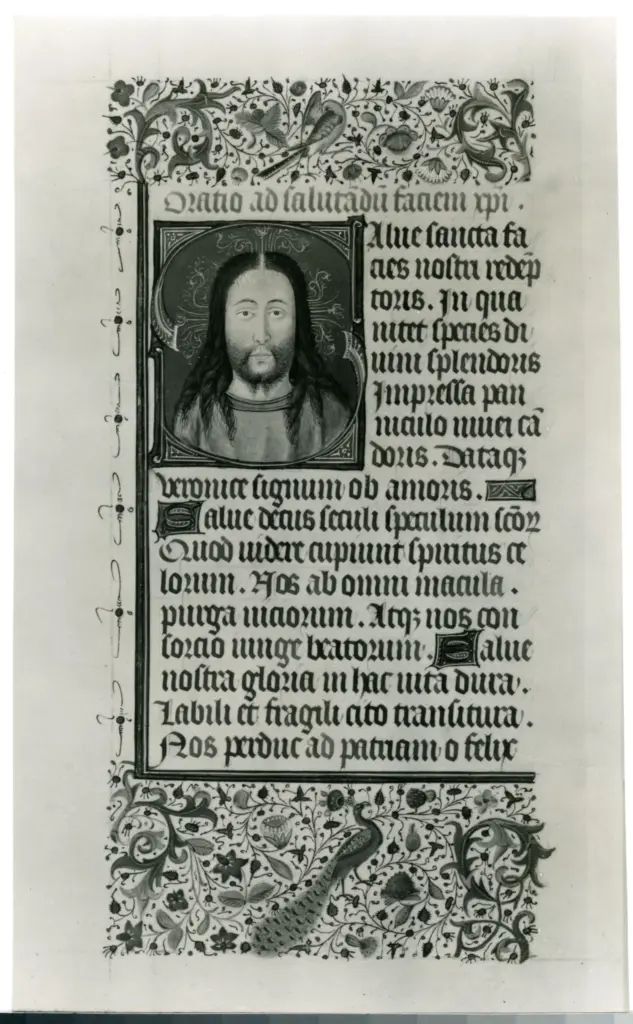 Oratio ad salutādū faciem xpi .
Salue sancta fa
cies nostri redēp
toris . In qua
nitet species di
uini splendoris
Impressa pan
niculo niuei cā
doris . Dataqꝫ
veronice signum ob amoris .
Salue decus seculi speculum scōꝝ
Quod uidere cupiunt spiritus ce
lorum . Nos ab omni macula .
purga uiciorum . Atqꝫ nos con
sorcio iunge beatorum . Salue
nostra gloria in hac uita dura .
Labili et fragili cito transitura .
Nos perduc ad patriam o felix